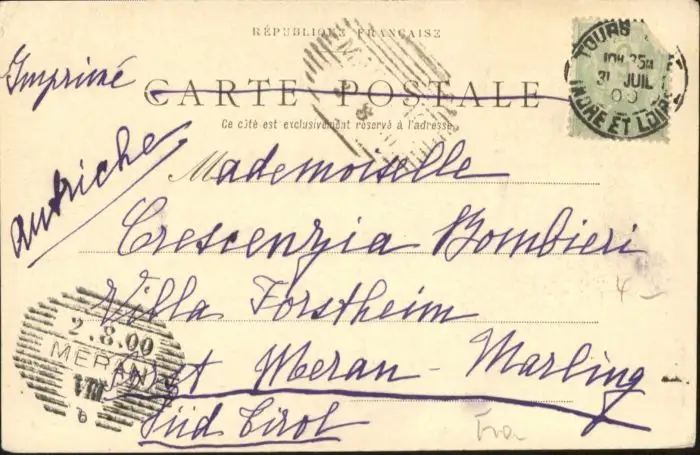 RÉPUBLIQUE FRANÇAISE
Imprimé
CARTE POSTALE
Ce côté est exclusivement réservé à l'adresse
TOURS
10H 35M
31 JUIL
00
INDRE ET LOIRE
Autriche
Mademoiselle
Crescenzia Bombieri
Villa Forstheim
Meran - Marling
Süd Tirol
2.8.00
MERAN
VIII
b